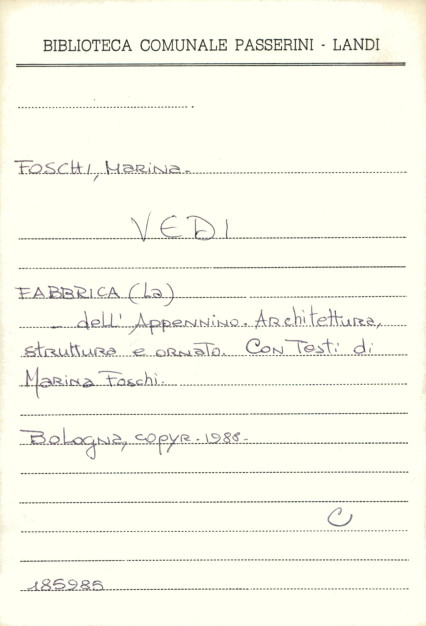 BIBLIOTECA COMUNALE PASSERINI - LANDI
FOSCHI, Marina.
VEDI
FABBRICA (La)
- dell' Appennino. Architettura,
struttura e ornato. Con Testi di
Marina Foschi.
Bologna, copyr. 1988.
C
185985